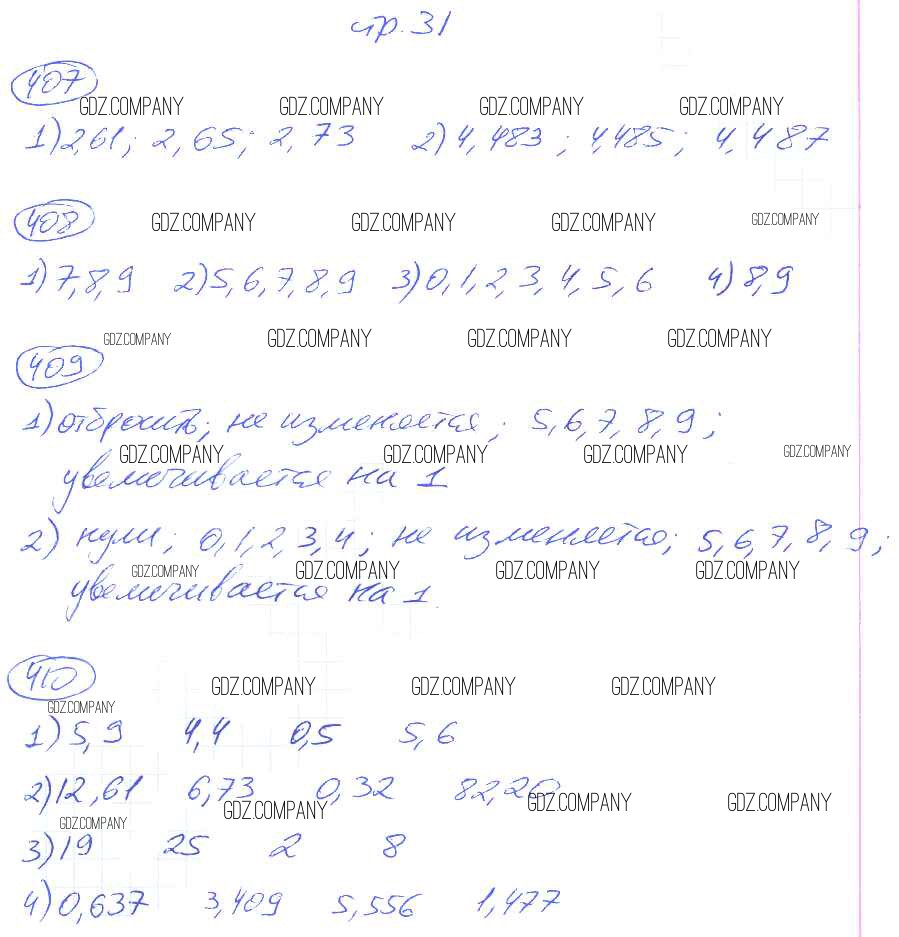 стр. 31
407
GDZ.COMPANY GDZ.COMPANY GDZ.COMPANY GDZ.COMPANY
1) 2,61; 2,65; 2,73 2) 4,483; 4,485; 4,487
408 GDZ.COMPANY GDZ.COMPANY GDZ.COMPANY GDZ.COMPANY
1) 7,8,9 2) 5,6,7,8,9 3) 0,1,2,3,4,5,6 4) 8,9
GDZ.COMPANY GDZ.COMPANY GDZ.COMPANY GDZ.COMPANY
409
1) отбросить; не изменяется; 5,6,7,8,9;
GDZ.COMPANY GDZ.COMPANY GDZ.COMPANY GDZ.COMPANY
увеличивается на 1
2) нули; 0,1,2,3,4; не изменяется; 5,6,7,8,9;
GDZ.COMPANY GDZ.COMPANY GDZ.COMPANY GDZ.COMPANY
увеличивается на 1
410 GDZ.COMPANY GDZ.COMPANY GDZ.COMPANY
GDZ.COMPANY
1) 5,9 4,4 0,5 5,6
2) 12,61 6,73 0,32 82,20
GDZ.COMPANY GDZ.COMPANY GDZ.COMPANY
GDZ.COMPANY
3) 19 25 2 8
4) 0,637 3,409 5,556 1,477